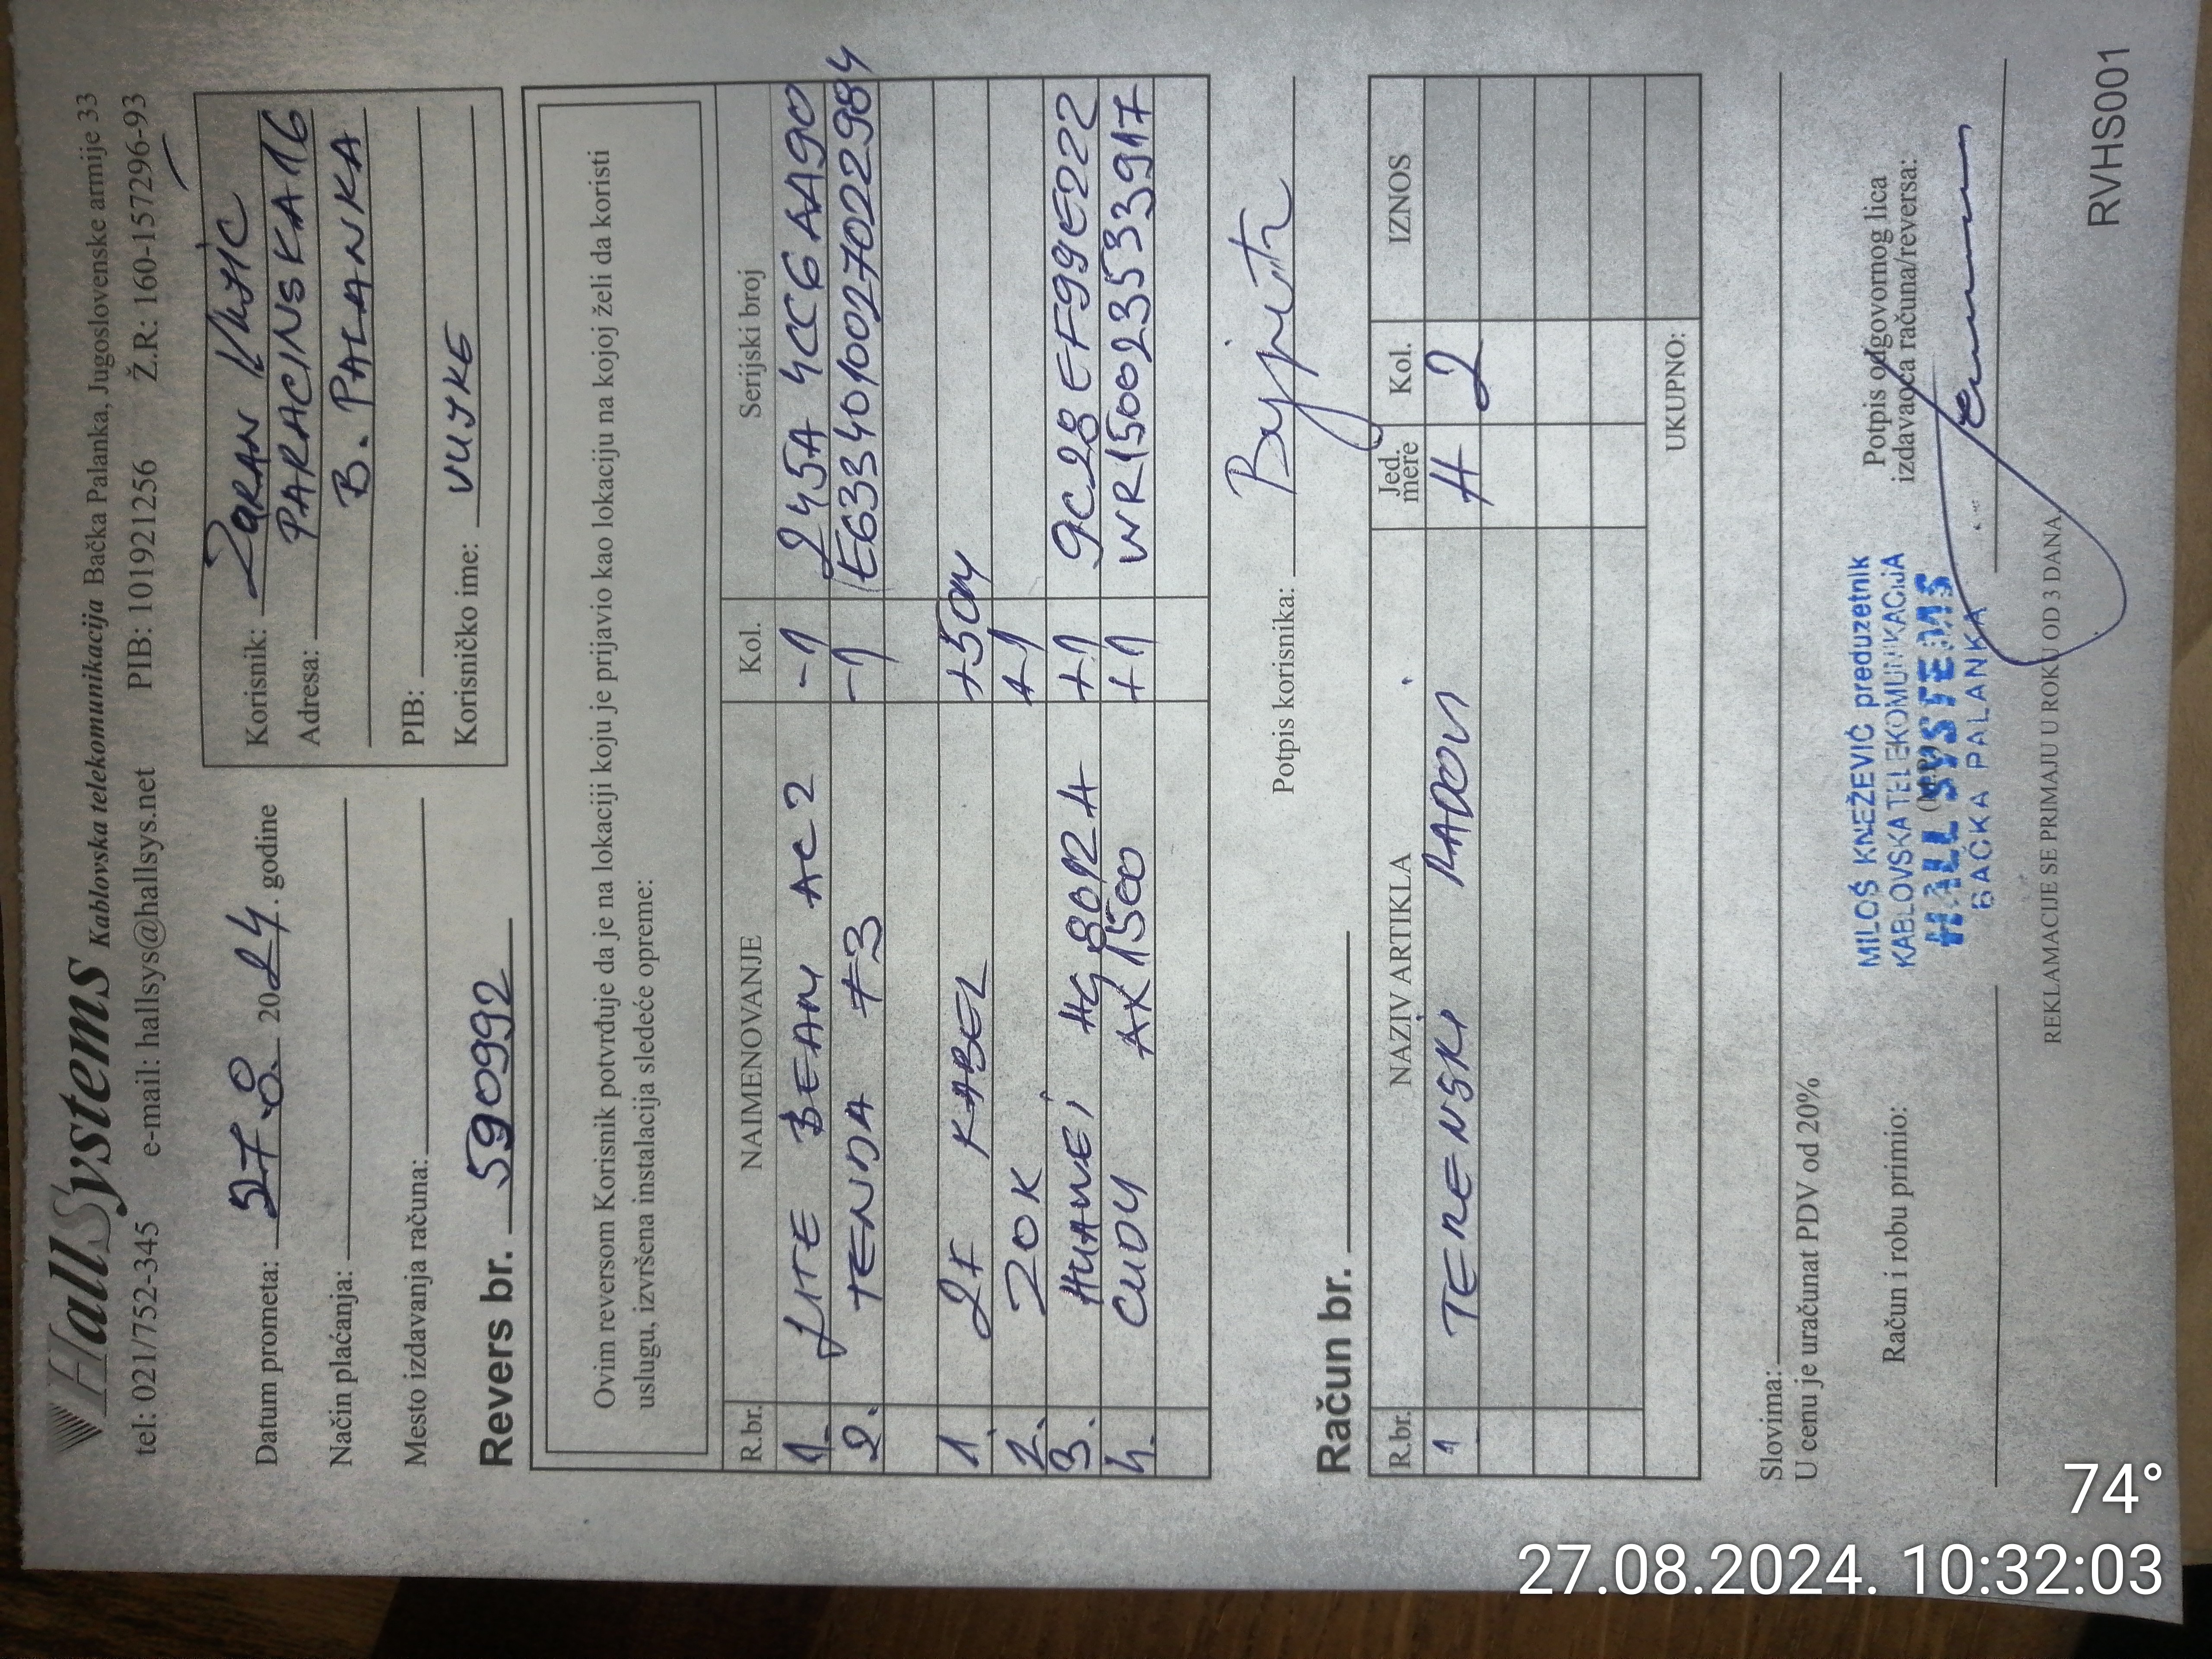 HallSystems Kablovska telekomunikacija Bačka Palanka, Jugoslovenske armije 33
tel: 021/752-345 e-mail: hallsys@hallsys.net PIB: 101921256 Ž.R: 160-157296-93
Datum prometa: 27.8. 2024. godine
Način plaćanja:
Mesto izdavanja računa:
Korisnik: ZORAN
Adresa: PARACINSKA 16
B. PALANKA
PIB:
Korisničko ime: VUJKE
Revers br. 590992
Ovim reversom Korisnik potvrđuje da je na lokaciji koju je prijavio kao lokaciju na kojoj želi da koristi
uslugu, izvršena instalacija sledeće opreme:
R.br. NAIMENOVANJE Kol. Serijski broj
1. LITE BEAM AC2 -1 245A 4CC6AA90
2. TENDA F3 -1 E6334010027022984
1. 2F KABEL +50M
2. ZOK +1
3. HUAWEI HG8012H +1 9C28EF99E222
4. CUDY AX1500 +1 WR150023533917
Potpis korisnika:
Račun br.
R.br. NAZIV ARTIKLA Jed. mere Kol. IZNOS
1 TERENSKI RADOVI H 2
UKUPNO:
Slovima:
U cenu je uračunat PDV od 20%
Račun i robu primio:
MILOŠ KNEŽEVIĆ preduzetnik
KABLOVSKA TELEKOMUNIKACIJA
HALL SYSTEMS
BAČKA PALANKA
Potpis odgovornog lica
izdavaoca računa/reversa:
REKLAMACIJE SE PRIMAJU U ROKU OD 3 DANA
RVHS001
74°
27.08.2024. 10:32:03